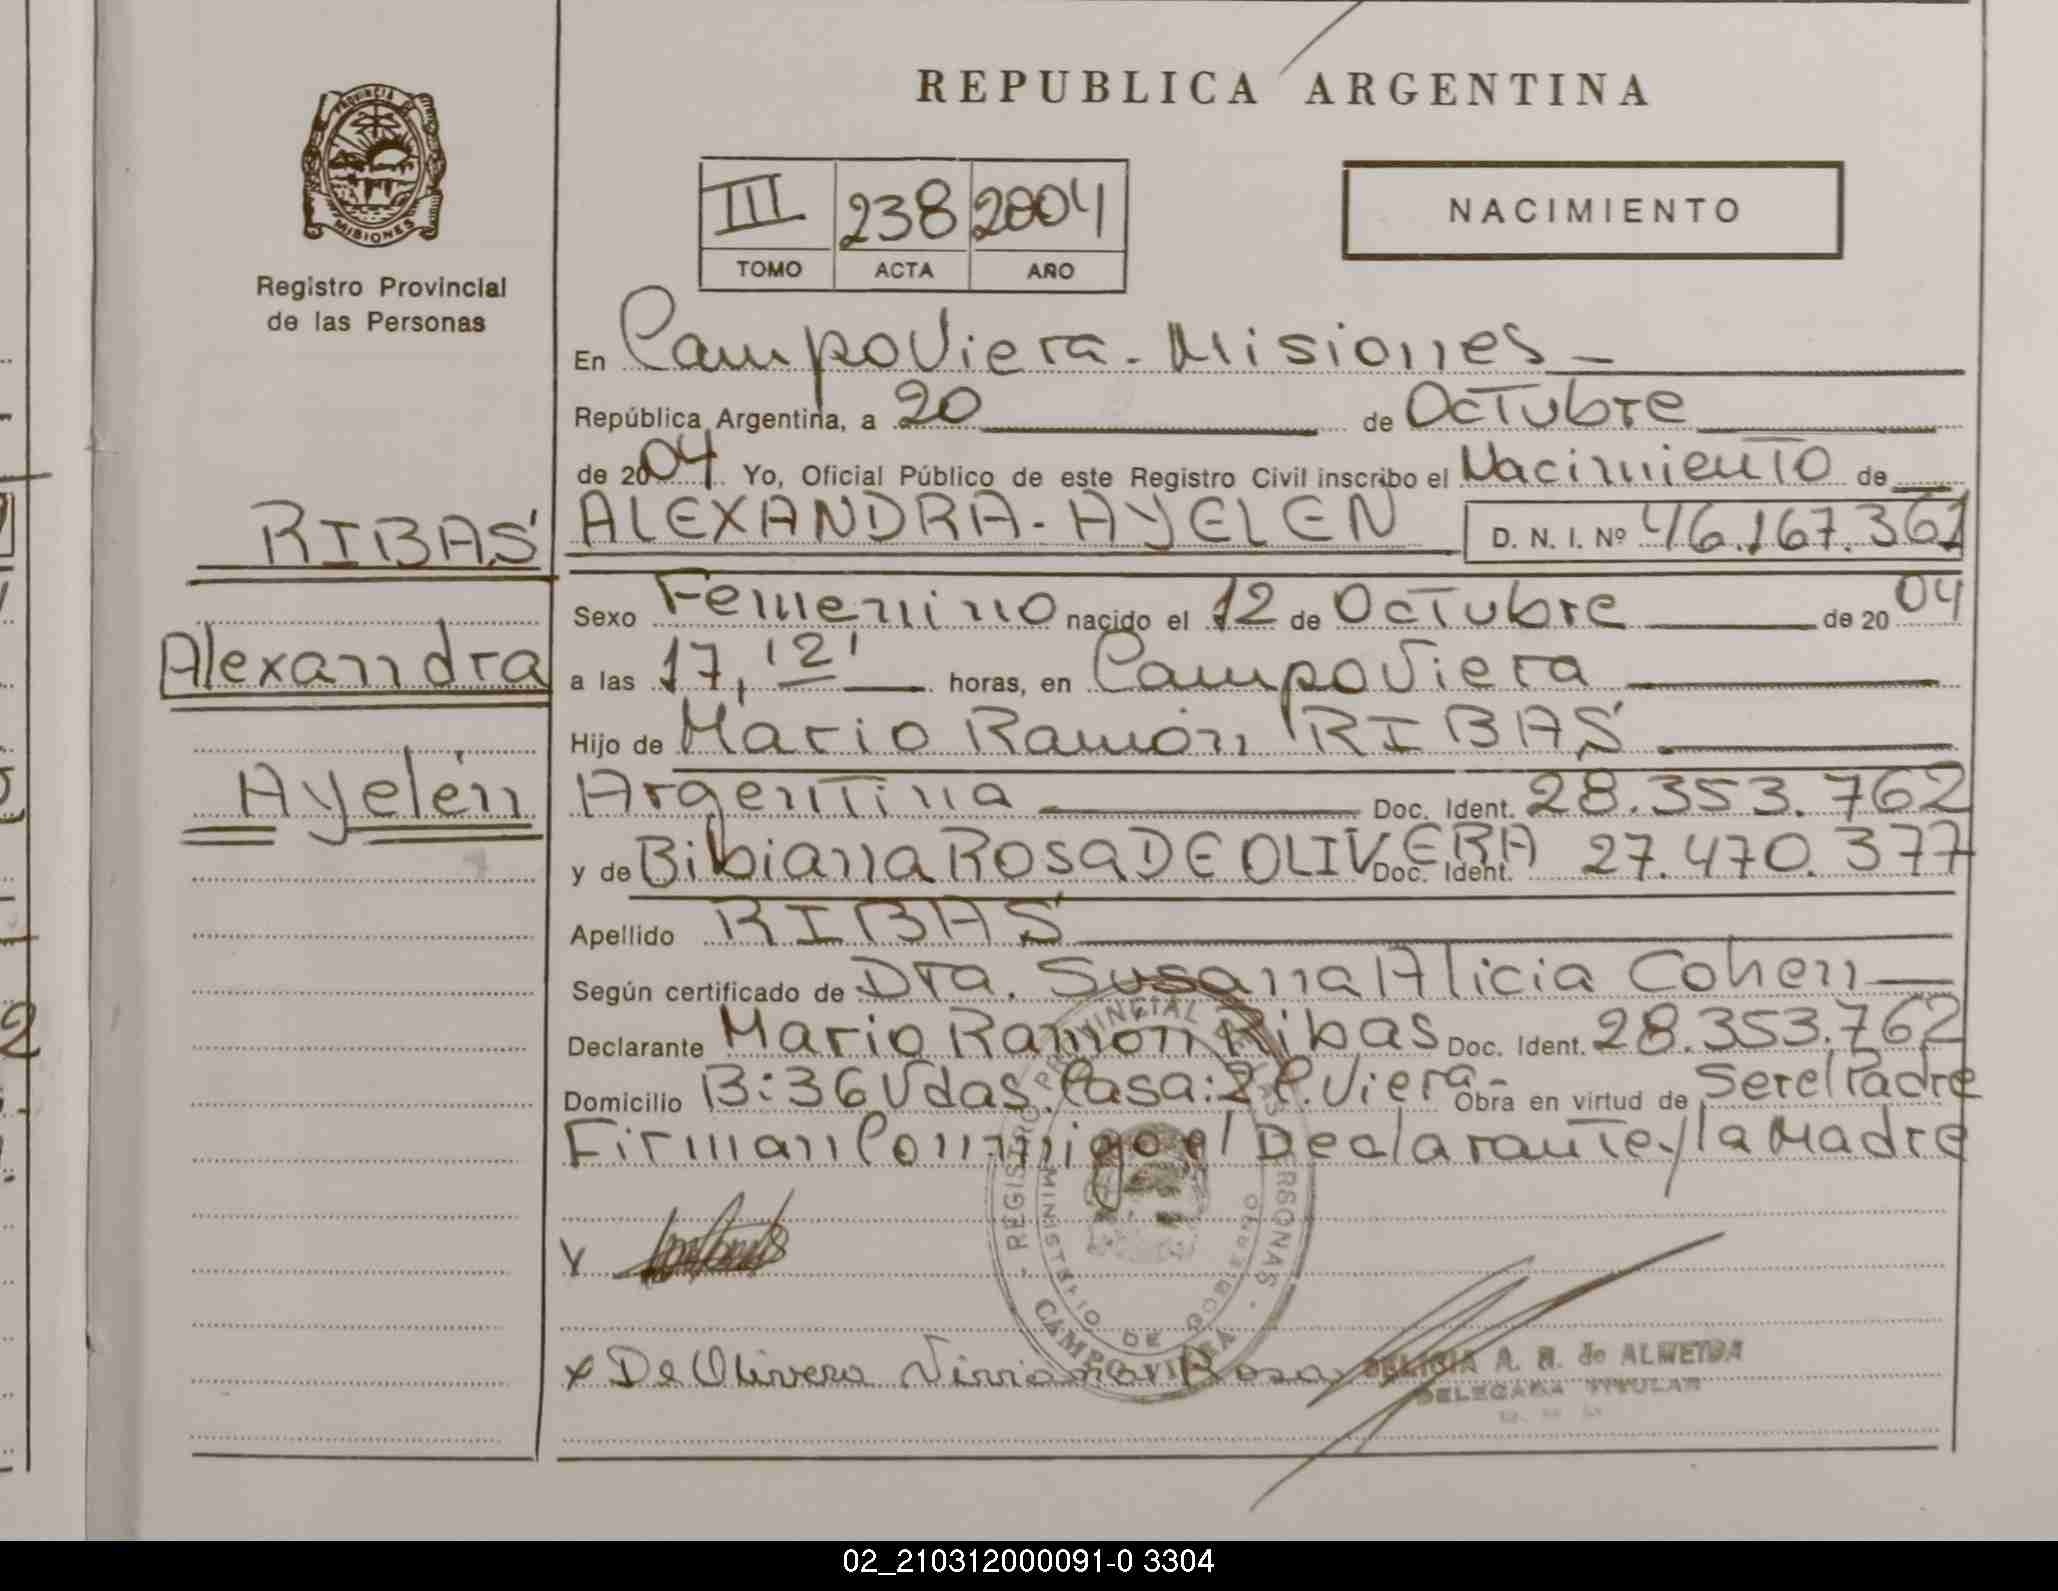 REPUBLICA ARGENTINA
PROVINCIA DE
MISIONES
Registro Provincial
de las Personas
III 238 2004
TOMO ACTA AÑO
NACIMIENTO
En Campo Viera - Misiones -
República Argentina, a 20 de Octubre
de 2004 Yo, Oficial Público de este Registro Civil inscribo el Nacimiento de
RIBAS
ALEXANDRA - AYELEN D. N. I. Nº 46.167.361
Sexo Femenino nacido el 12 de Octubre de 2004
Alexandra
a las 17,12' horas, en Campo Viera
Hijo de Mario Ramón RIBAS
Ayelén
Argentina Doc. Ident. 28.353.762
y de Bibiana Rosa DE OLIVERA Doc. Ident. 27.470.377
Apellido RIBAS
Según certificado de Dra. Susana Alicia Cohen
Declarante Mario Ramón Ribas Doc. Ident. 28.353.762
Domicilio B: 36 Vdas. Casa: 2 C. Viera - Obra en virtud de Ser el Padre
Firman Conmigo el Declarante y la Madre
REGISTRO PROVINCIAL DE LAS PERSONAS
MINISTERIO DE GOBIERNO
CAMPO VIERA
x De Olivera Viviana Rosa
DELICIA A. R. de ALMEIDA
DELEGADA TITULAR
02_210312000091-0 3304